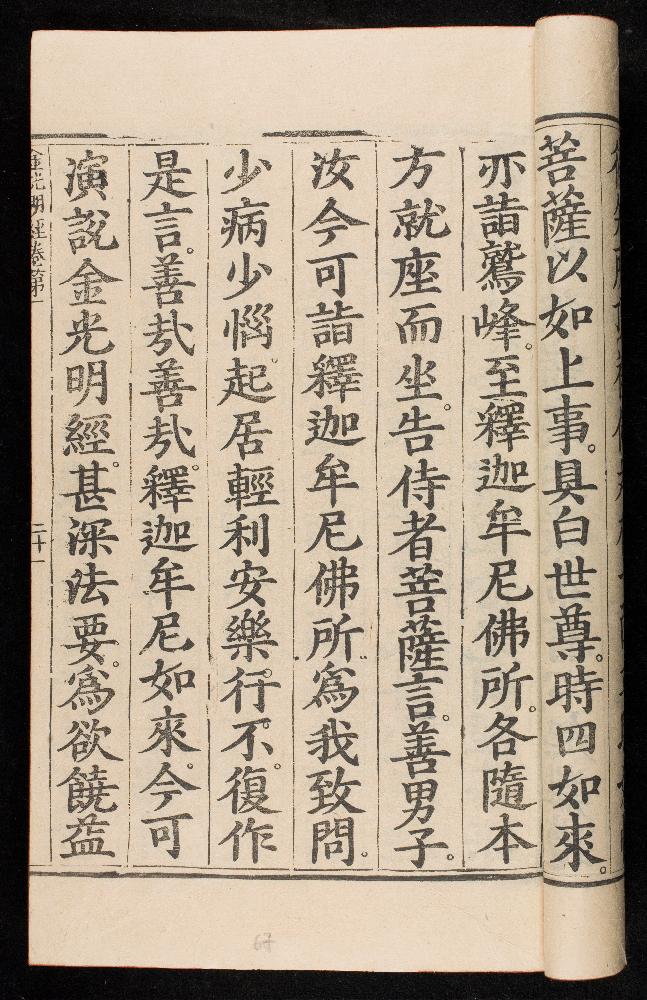 菩薩以如上事。具白世尊。時四如來。
亦詣鷲峰。至釋迦牟尼佛所。各隨本
方就座而坐。告侍者菩薩言。善男子。
汝今可詣釋迦牟尼佛所。為我致問。
少病少惱。起居輕利安樂。行不。復作
是言。善㢤善㢤。釋迦牟尼如來。今可
演說金光明經。甚深法要。為欲饒益
金光明經卷第一
二十一
67